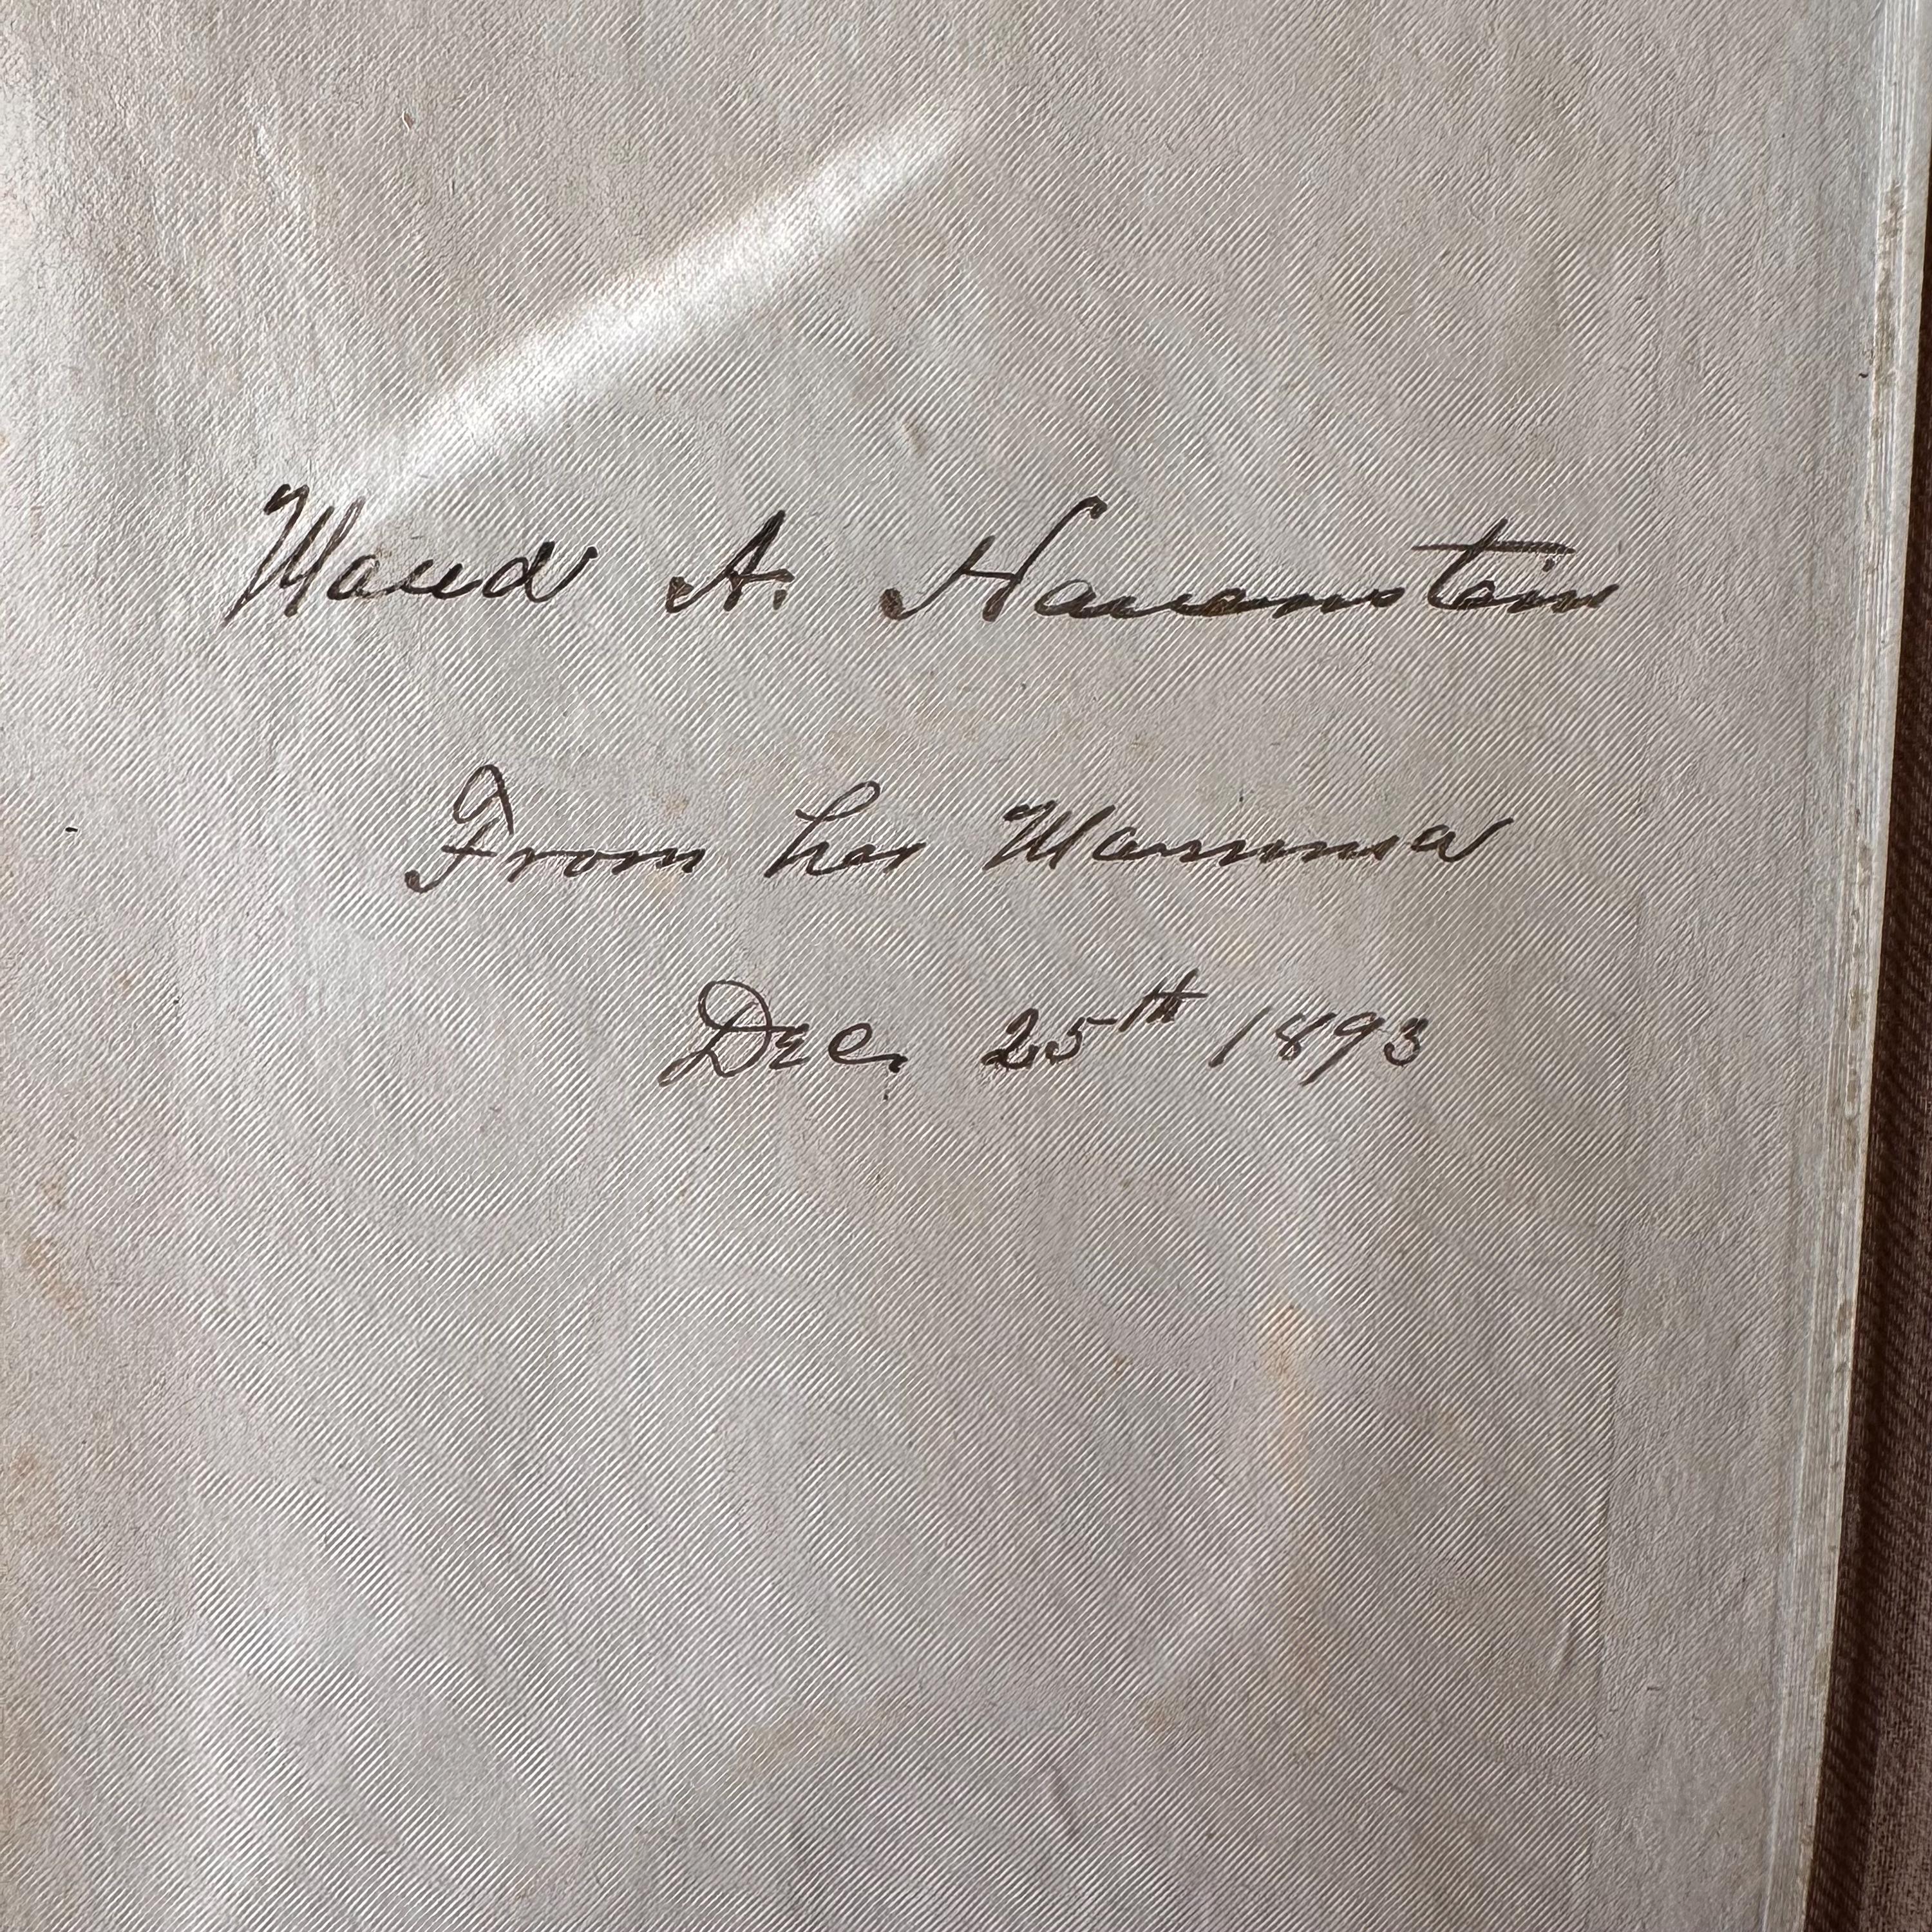 Maud A. Hauenstein
From her Mamma
Dec. 25th 1893